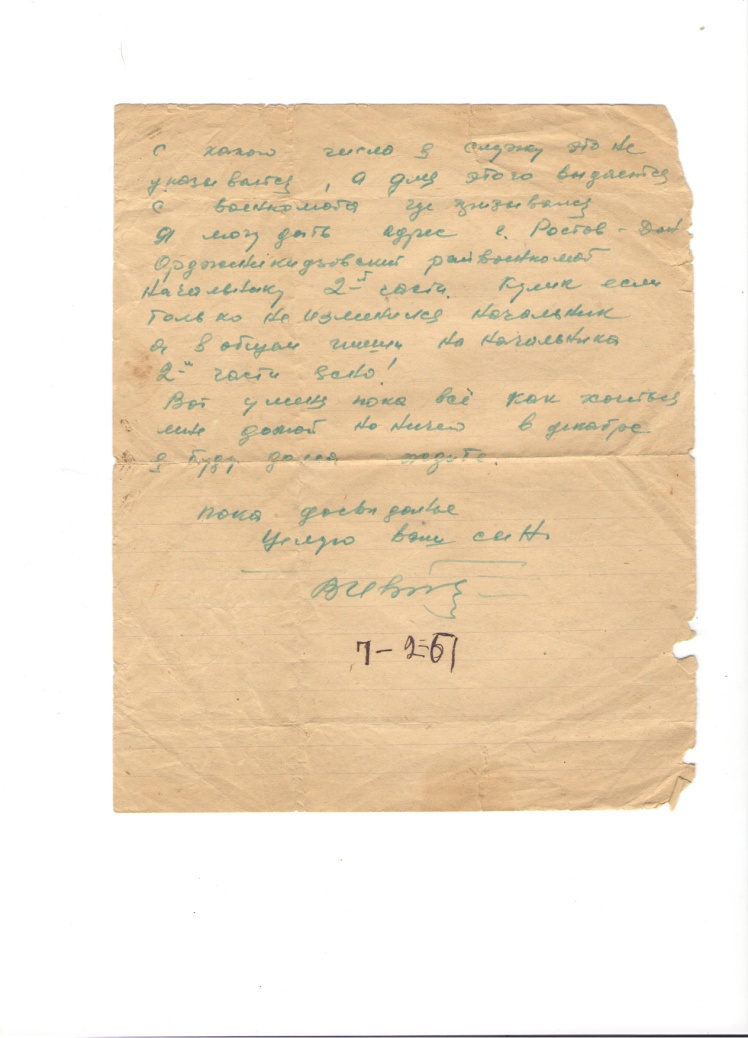 с какого числа я служу это не
указивается, а для этого выдается
с военкомата где призывался
Я могу дать адрес г. Ростов-Дон
Орджоникидзовский райвоенкомат
Начальнику 2-й части. Кулик если
только не изменился начальник
а в общем пиши на начальника
2-й части ясно!
Вот у меня пока всё как хочеться
мне домой но ничего в декабре
я буду дома ждите.
пока досвидонье
Целую ваш сын
7-2-51